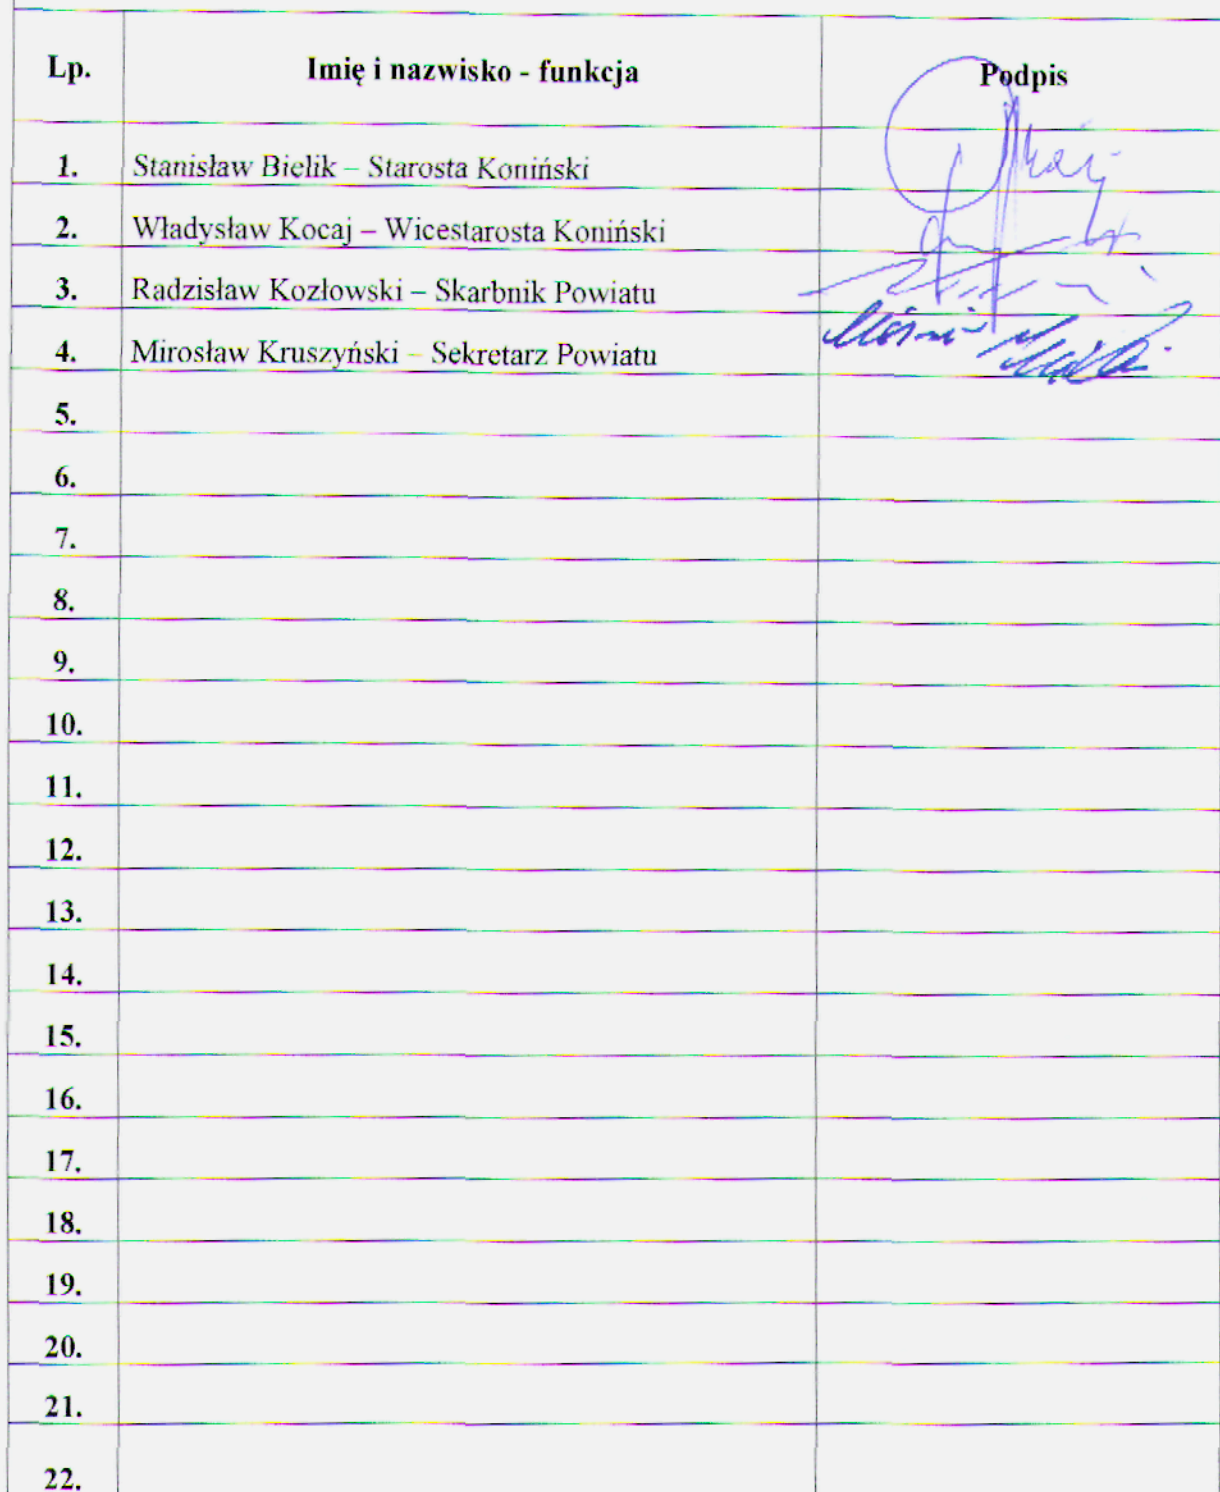 Lp. Imię i nazwisko - funkcja Podpis
1. Stanisław Bielik – Starosta Koniński
2. Władysław Kocaj – Wicestarosta Koniński
3. Radzisław Kozłowski – Skarbnik Powiatu
4. Mirosław Kruszyński – Sekretarz Powiatu
5.
6.
7.
8.
9.
10.
11.
12.
13.
14.
15.
16.
17.
18.
19.
20.
21.
22.